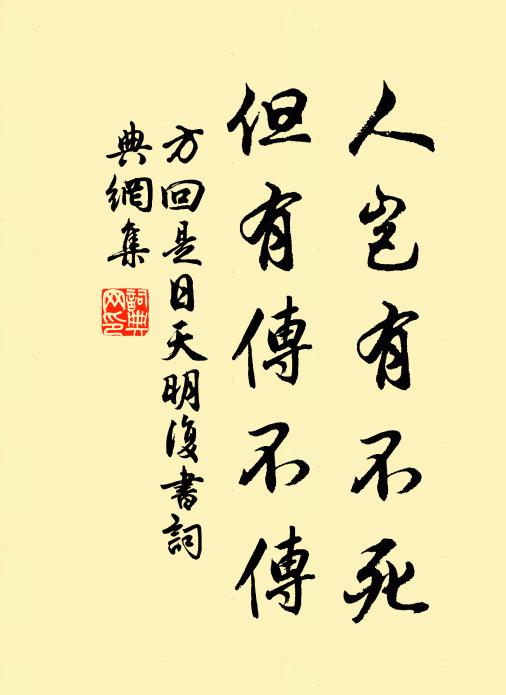 人豈有不死
但有傳不傳
方回是日天明復書詞
典網集
詞典
网印